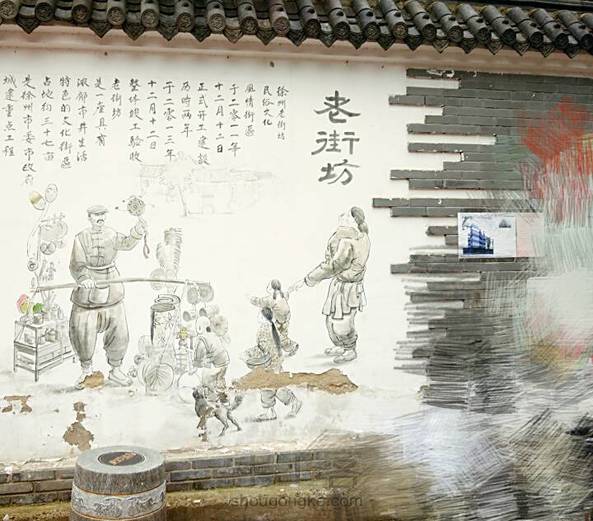 老街坊
徐州老街坊
民俗文化
風情街區
于二零一一年
十二月十二日
正式开工建設
历时两年
于二零一三年
十二月十二日
整体竣工驗收
老街坊
是一座具有
浓郁市井生活
特色的文化街區
占地約三十七亩
是徐州市委市政府
城建重点工程
shougongke.com